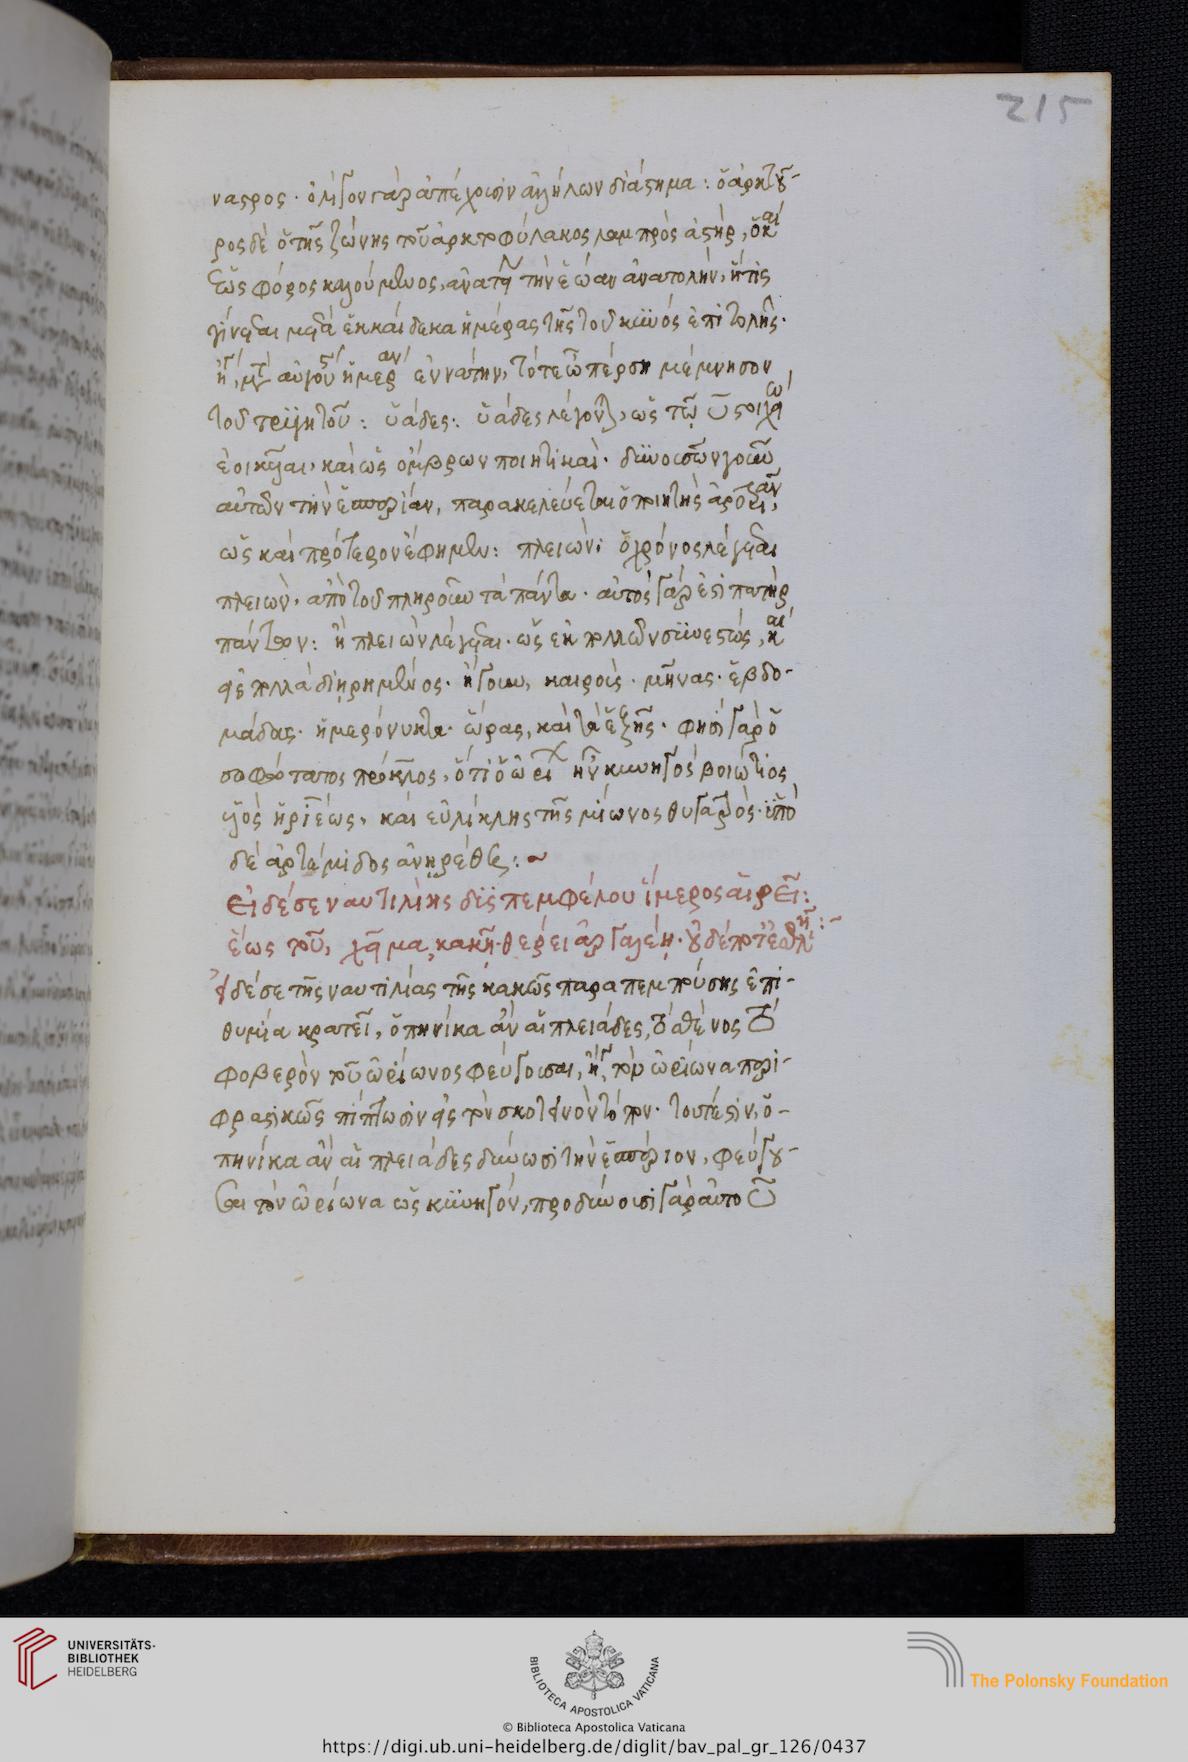 215
ναστρος. ὀλίγον γὰρ ἀπέχουσιν ἀλλήλων διάστημα: ὁ ἀρκτοῦ-
ρος δὲ ὁ τῆς ζώνης τοῦ ἀρκτοφύλακος λαμπρὸς ἀστήρ, ὁ καὶ
ἑωσφόρος καλούμενος, τὴν ἑῴαν ἀνατολήν, ἥτις
γίνεται μετὰ ἑκκαίδεκα ἡμέρας τῆς τοῦ κυνός ἐπιτολῆς.
αὐγούστου ἡμέραν ἐννάτην, τότε ὦ πέρση μέμνησον
τοῦ τρυγητοῦ: ὑάδες: ὑάδες λέγονται, ὡς τῷ υ στοιχείῳ
ἐοικυῖαι, καὶ ὡς ὄμβρων ποιητικαὶ. δυνουσῶν γοῦν
αὐτῶν τὴν ἑσπερίαν, παρακελεύεται ὁ ποιητὴς ἀροτριᾶν,
ὡς καὶ πρότερον ἔφημεν: πλειών: ὁ χρόνος λέγεται
πλειὼν, ἀπὸ τοῦ πληροῦν τὰ πάντα. αὐτὸς γάρ ἐστι πατὴρ
πάντων: ἢ πλειὼν λέγεται. ὡς ἐκ πολλῶν συνεστώς, καὶ
εἰς πολλὰ διῃρημένος. ἤγουν, καιροὺς. μῆνας. ἑβδο-
μάδας. ἡμερόνυκτα. ὥρας, καὶ τὰ ἑξῆς. φησὶ γὰρ ὁ
σοφώτατος πρόκλος, ὅτι ὁ ὠρίων ἦν κυνηγὸς βοιώτιος
υἱὸς ὑριέως, καὶ εὐλίκλης τῆς μίωνος θυγατρός. ὑπὸ
δὲ ἀρτέμιδος ἀνῃρέθη:~
Εἰ δέ σε ναυτιλίης δυσπεμφέλου ἵμερος αἱρεῖ:
ἕως τοῦ, χεῖμα, κακῇ. θέρει ἀργαλέῃ. οὐδέποτε ἐσθλῇ:~
εἰ δέ σε τῆς ναυτιλίας τῆς κακῶς παραπεμπούσης ἐπι-
θυμία κρατεῖ, ὁπηνίκα ἂν αἱ πλειάδες, τὸ σθένος τὸ
φοβερὸν τοῦ ὠρίωνος φεύγουσαι, ἤγουν τὸν ὠρίωνα περι-
φραστικῶς πίπτωσιν εἰς τὸν σκοτεινὸν τόπον. τουτέστιν, ὁ-
πηνίκα ἂν αἱ πλειάδες δύνωσι τὴν ἑσπέριον, φεύγου-
σαι τὸν ὠρίωνα ὡς κυνηγόν, προδύνουσι γὰρ αὐτοῦ
UNIVERSITÄTS-
BIBLIOTHEK
HEIDELBERG
BIBLIOTECA APOSTOLICA VATICANA
The Polonsky Foundation
© Biblioteca Apostolica Vaticana
https://digi.ub.uni-heidelberg.de/diglit/bav_pal_gr_126/0437